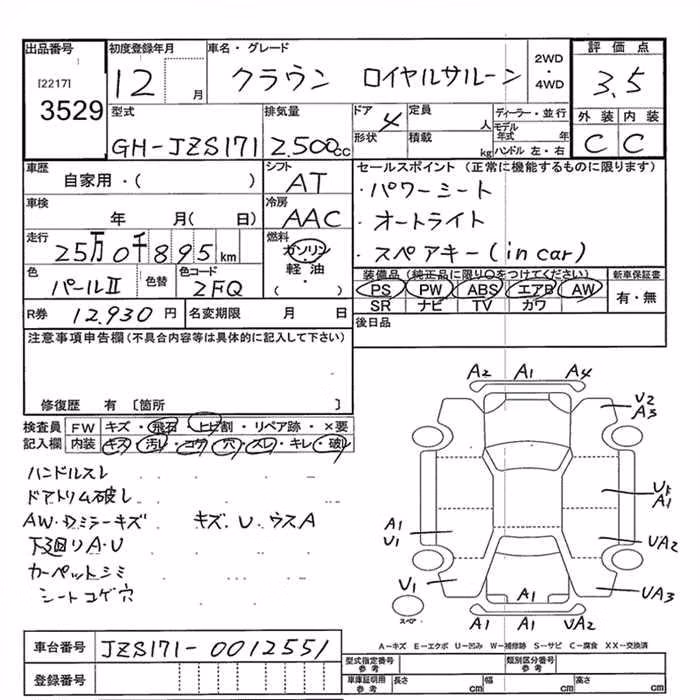 出品番号 初度登録年月 車名・グレード 2WD ・ 4WD 評価点
[2217]
3529
12 月 クラウン ロイヤルサルーン 3.5
型式 排気量 ドア 4 定員 人 ディーラー・並行 外装 内装
GH-JZS171 2.500cc 形状 積載 kg モデル年式 年 ハンドル 左・右 C C
車歴 自家用・( ) シフト AT セールスポイント (正常に機能するものに限ります)
・パワーシート
車検 年 月( 日) 冷房 AAC ・オートライト
走行 25万0千895km 燃料 ガソリン 軽油 ・ ( ) ・スペアキー(in car)
色 パールII 色替 色コード 2FQ 装備品 (純正品に限り○をつけてください) 新車保証書
PS PW ABS エアB AW 有・無
SR ナビ TV カワ
R券 12,930 円 名変期限 月 日 後日品
注意事項申告欄 (不具合内容等は具体的に記入して下さい)
修復歴 有 〔箇所 〕
検査員 FW キズ・飛石・ヒビ割・リペア跡・×要
記入欄 内装 キズ・汚レ・コゲ・穴・スレ・キレ・破レ
ハンドルスレ
ドアトリム破レ
AW・Dミラーキズ キズ.U.ウスA
下廻りA・U
カーペットシミ
シートコゲ穴
A2 A1 A4
U2
A3
A1
A1
U1
UA2
U1
UA3
スペア
A1 A1 UA2
A-キズ E-エクボ U-凹み W-補修跡 S-サビ C-腐食 XX-交換済
車台番号 JZS171-0012551
登録番号
型式指定番号 参考 類別区分番号 参考
車庫証明用 参考 長さ cm 幅 cm 高さ cm